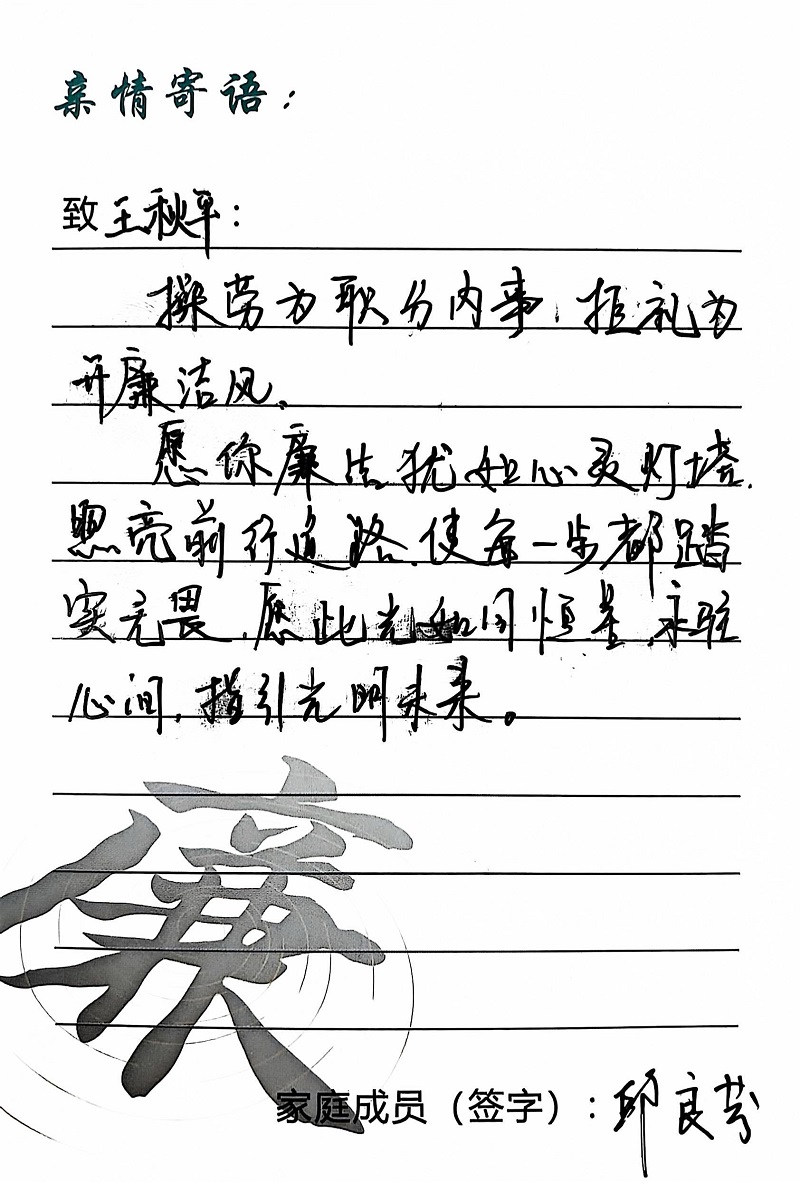 亲情寄语：
致王秋平：
操劳为职分内事，拒礼为
开廉洁风。
愿你廉洁犹如心灵灯塔，
照亮前行道路，使每一步都踏
实无畏，愿此光如同恒星，永驻
心间，指引光明未来。
廉
家庭成员（签字）：邱良芬